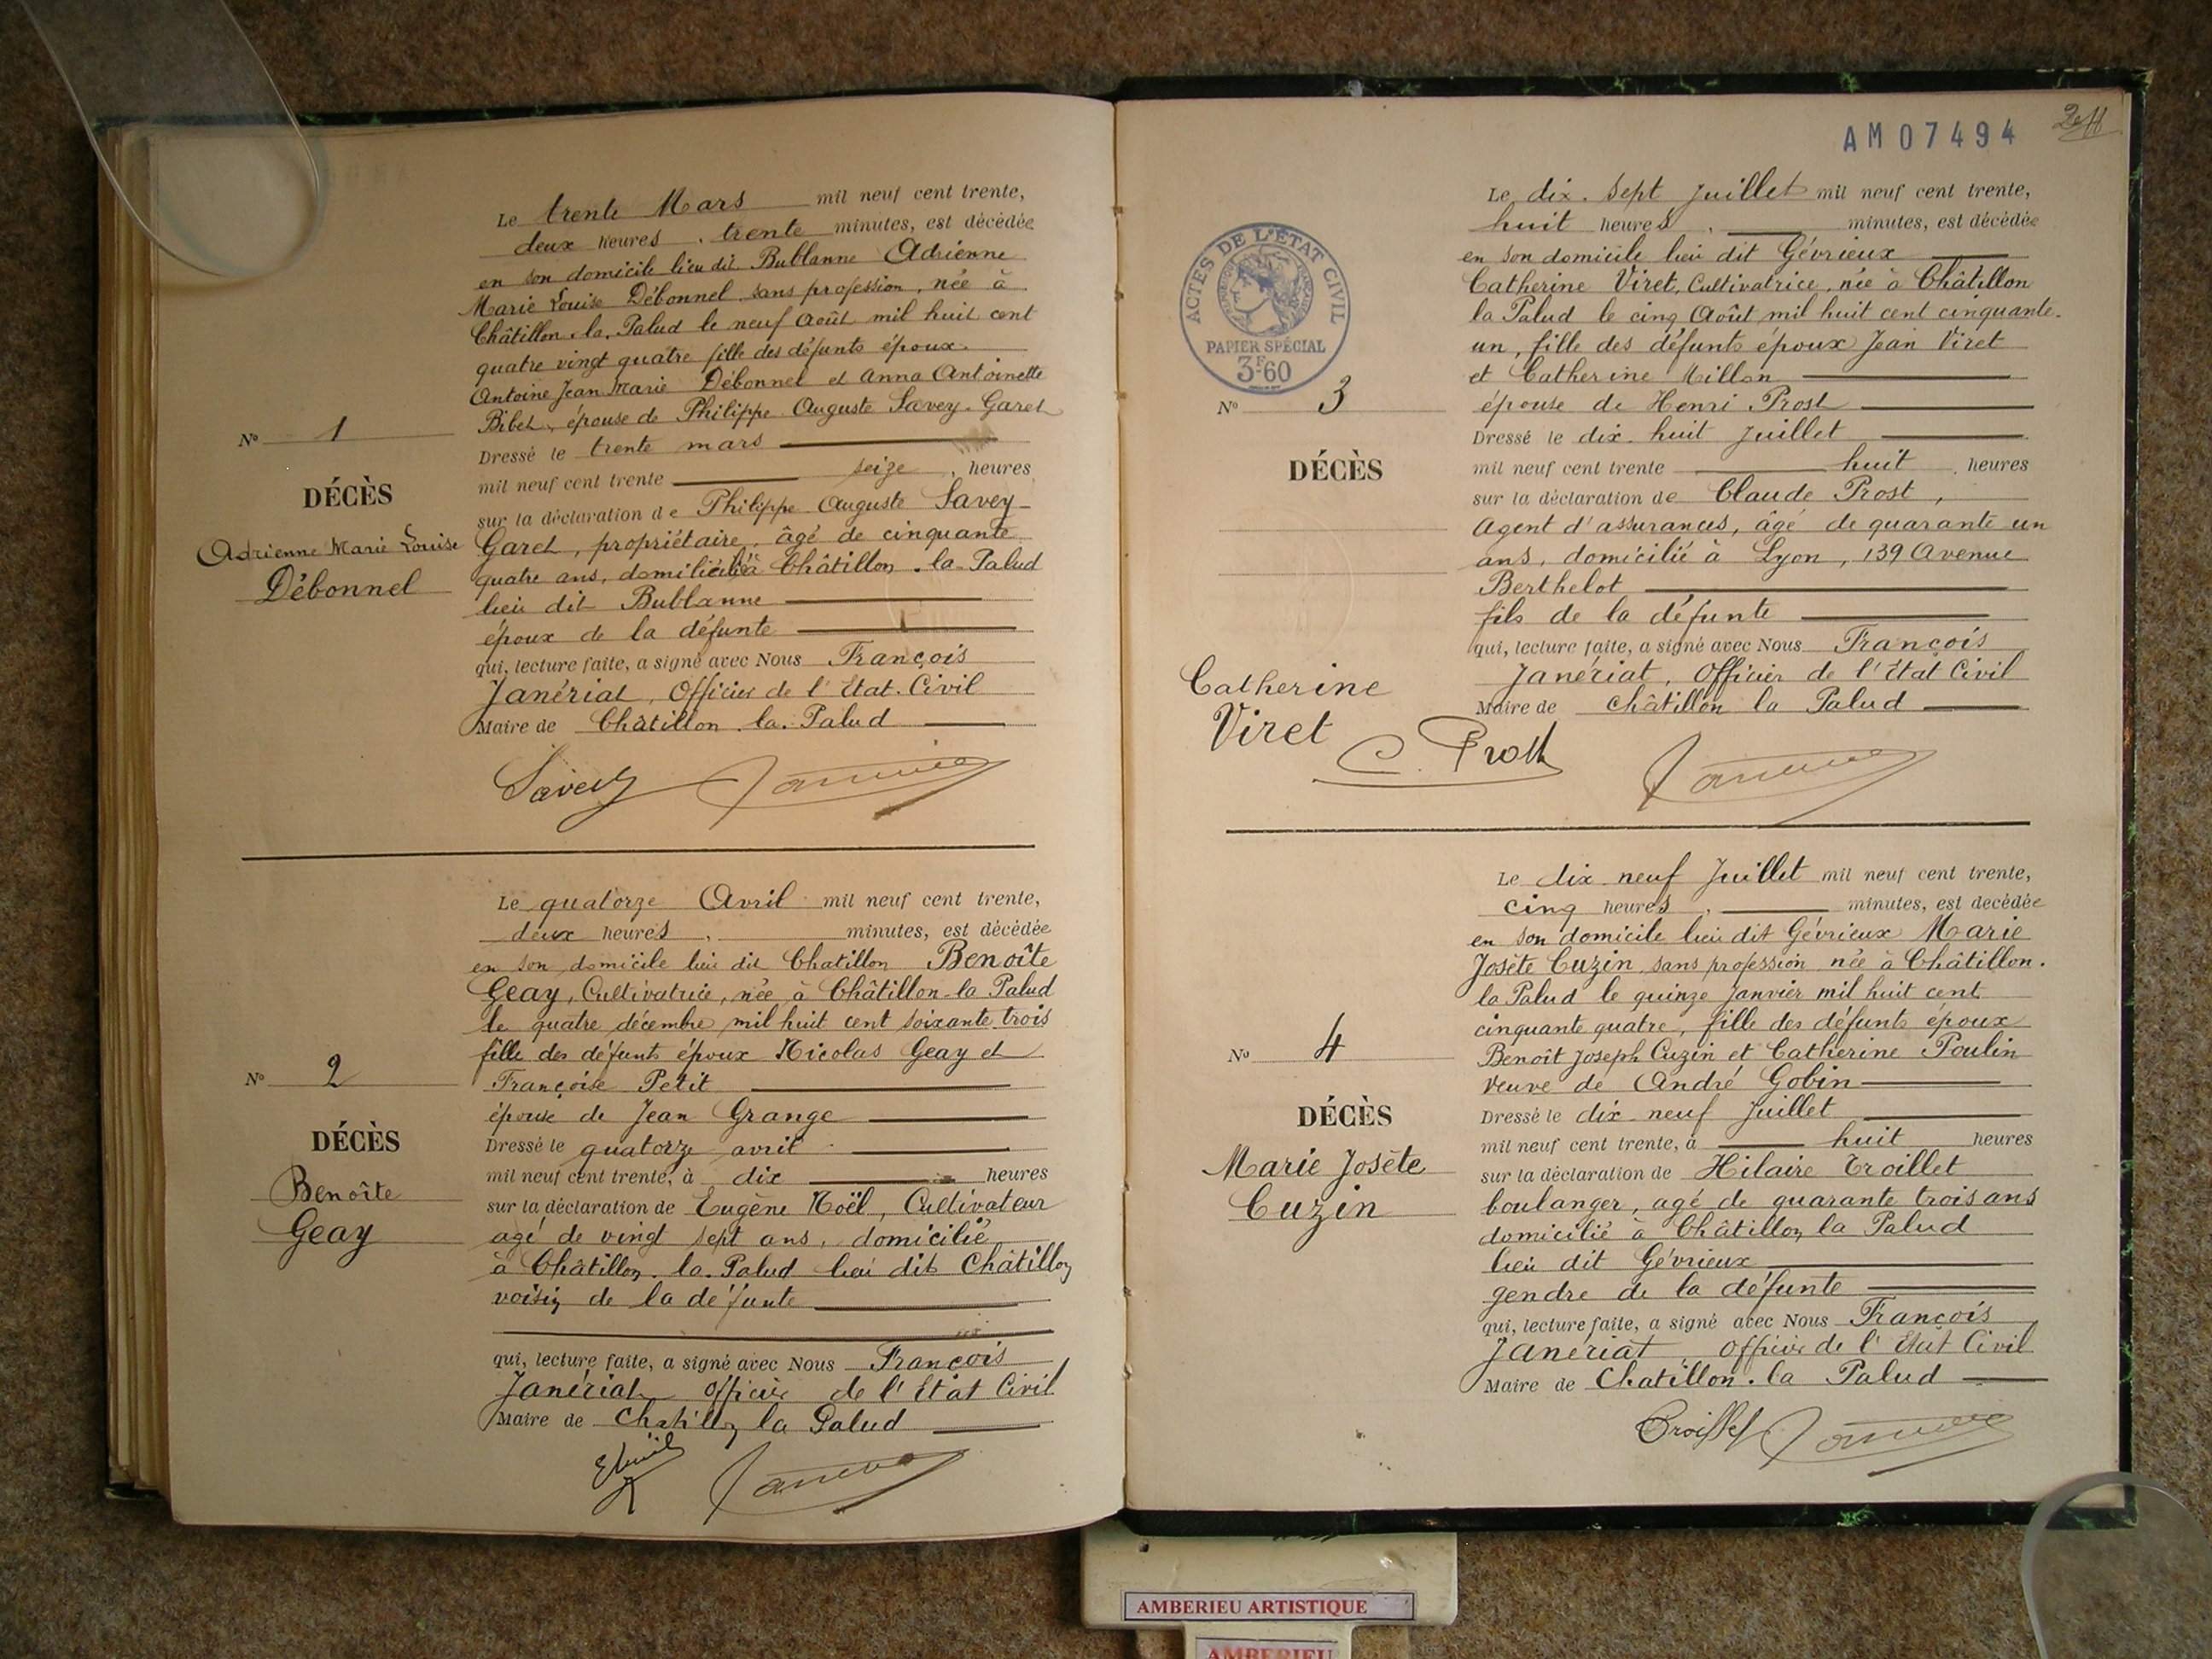 Le trente Mars mil neuf cent trente,
deux heures, trente minutes, est décédée
en son domicile lieu dit Bublanne Adrienne
Marie Louise Débonnel sans profession, née à
Châtillon-la-Palud le neuf Août mil huit cent
quatre vingt quatre fille des défunts époux
Antoine Jean Marie Débonnel et Anna Antoinette
Bibet, épouse de Philippe Auguste Savey-Garet
Dressé le trente mars
mil neuf cent trente seize, heures
sur la déclaration de Philippe Auguste Savey-
Garet, propriétaire, âgé de cinquante
quatre ans, domicilié à Châtillon-la-Palud
lieu dit Bublanne
époux de la défunte
qui, lecture faite, a signé avec Nous François
Janériat, Officier de l'Etat-Civil
Maire de Châtillon-la-Palud
Savey
N° 1
DÉCÈS
Adrienne Marie Louise
Débonnel
Le quatorze Avril mil neuf cent trente,
deux heures, minutes, est décédée
en son domicile lieu dit Chatillon Benoîte
Geay, Cultivatrice, née à Châtillon-la Palud
le quatre décembre mil huit cent soixante trois
fille des défunts époux Nicolas Geay et
Françoise Petit
épouse de Jean Grange
Dressé le quatorze avril
mil neuf cent trente, à dix heures
sur la déclaration de Eugène Noël, Cultivateur
agé de vingt sept ans, domicilié
à Châtillon-la-Palud lieu dit Châtillon
voisin de la défunte
qui, lecture faite, a signé avec Nous François
Janériat officier de l'Etat Civil
Maire de Chatillon la Palud
N° 2
DÉCÈS
Benoîte
Geay
AM07494
ACTES DE L'ÉTAT CIVIL
PAPIER SPÉCIAL
3F60
Le dix-sept Juillet mil neuf cent trente,
huit heures, minutes, est décédée
en son domicile lieu dit Gévrieux
Catherine Viret, Cultivatrice, née à Châtillon
la Palud le cinq Août mil huit cent cinquante-
un, fille des défunts époux Jean Viret
et Catherine Millon
épouse de Henri Prost
Dressé le dix-huit Juillet
mil neuf cent trente huit, heures
sur la déclaration de Claude Prost,
Agent d'assurances, âgé de quarante un
ans, domicilié à Lyon, 139 Avenue
Berthelot
fils de la défunte
qui, lecture faite, a signé avec Nous François
Janériat, Officier de l'état Civil
Maire de Châtillon la Palud
C. Prost
N° 3
DÉCÈS
Catherine
Viret
Le dix-neuf Juillet mil neuf cent trente,
cinq heures, minutes, est decédée
en son domicile lieu dit Gévrieux Marie
Josète Cuzin, sans profession, née à Châtillon-
la Palud le quinze Janvier mil huit cent
cinquante quatre, fille des défunts époux
Benoît Joseph Cuzin et Catherine Poulin
veuve de André Gobin
Dressé le dix-neuf Juillet
mil neuf cent trente, à huit heures
sur la déclaration de Hilaire Troillet
boulanger, agé de quarante trois ans
domicilié à Châtillon la Palud
lieu dit Gévrieux
gendre de la défunte
qui, lecture faite, a signé avec Nous François
Janériat, officier de l'Etat Civil
Maire de Chatillon-la Palud
Troillet
N° 4
DÉCÈS
Marie Josète
Cuzin
AMBERIEU ARTISTIQUE
AMBERIEU